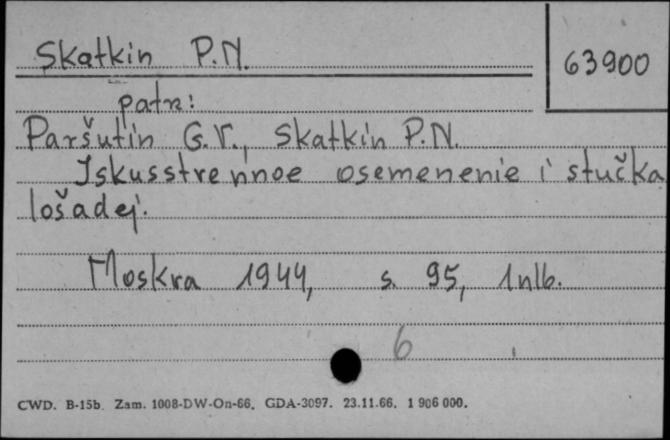 Skatkin P.N.
63900
patrz:
Paršutin G.V., Skatkin P.N.
Iskusstvennoe osemenenie i stučka
lošadej.
Moskva 1944, s. 95, 1nlb.
6
CWD. B-15b. Zam. 1008-DW-On-66. GDA-3097. 23.11.66. 1 906 000.